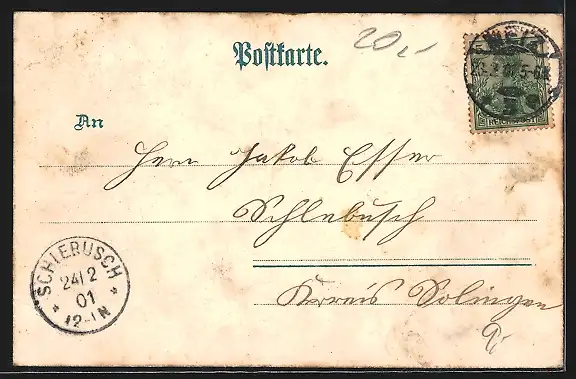 Postkarte.
20,-
An
Herrn Jakob Esser
Schlebusch
Kreis Solingen
SCHLEBUSCH
24/2
01
12-1N
REICHSPOST